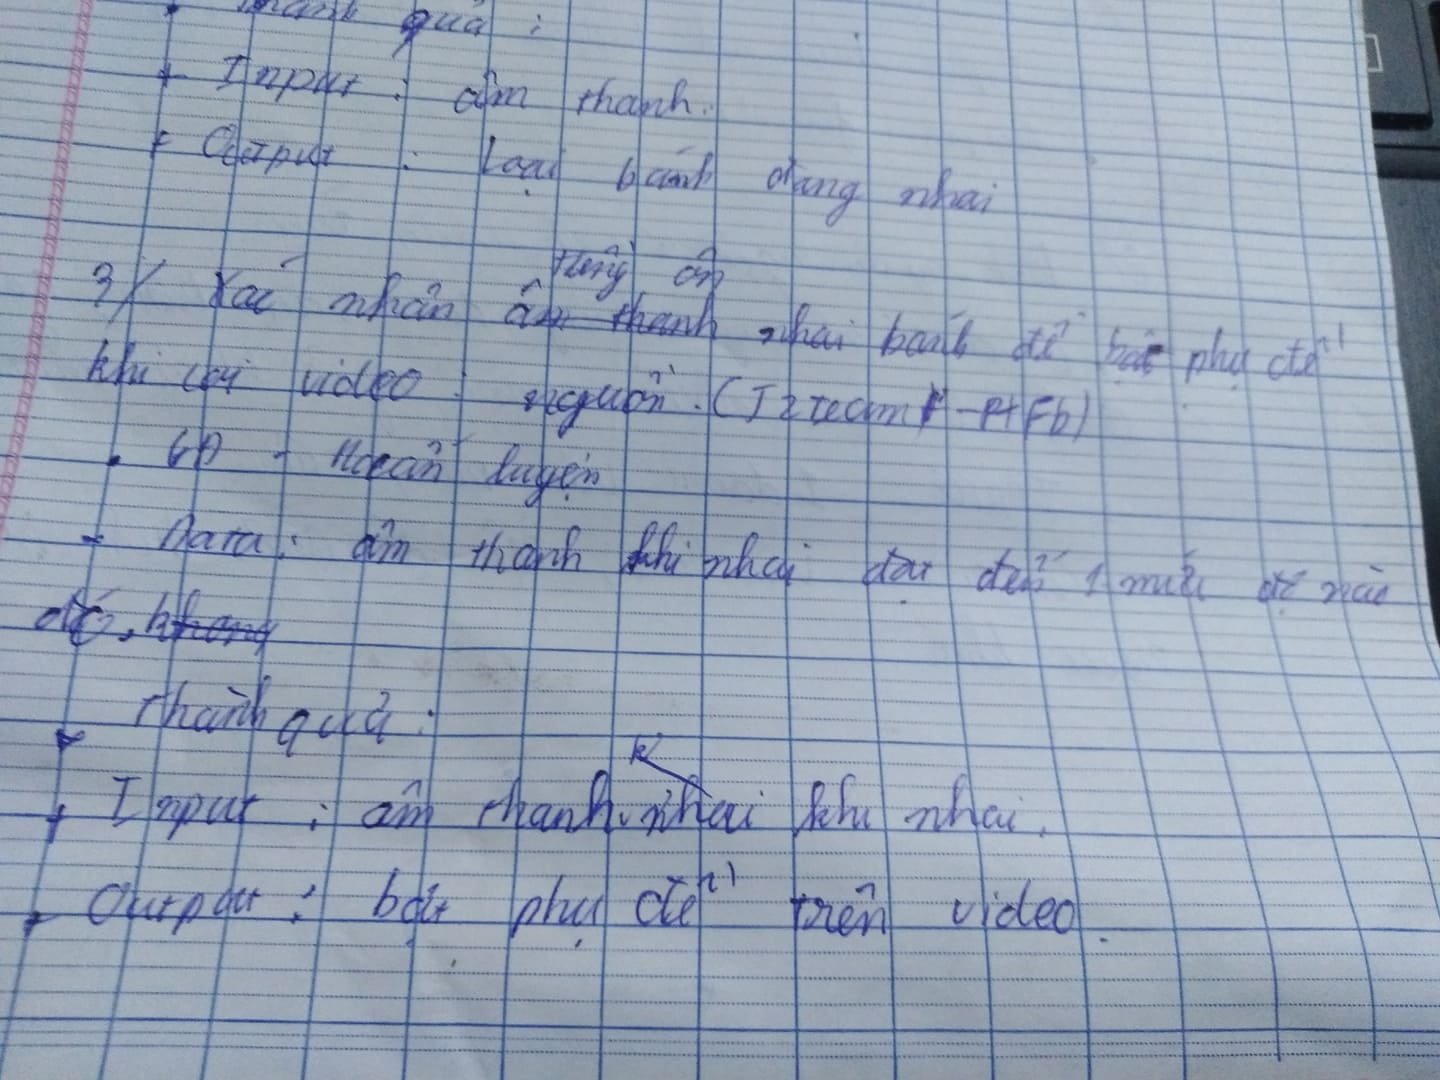 Thành quả :
+ Input : âm thanh.
+ Output : Loại bánh đang nhai
tiếng ồn
3/ Xác nhận âm thanh nhai bánh để bật phụ đề
khi coi video. nguồn. (
- Huấn luyện
+ Data : âm thanh khi nhai đạt đến 1 mức độ nào
đó, không
thành quả :
+ Input : âm thanh nhai khi nhai.
+ Output : bật phụ đề trên video.